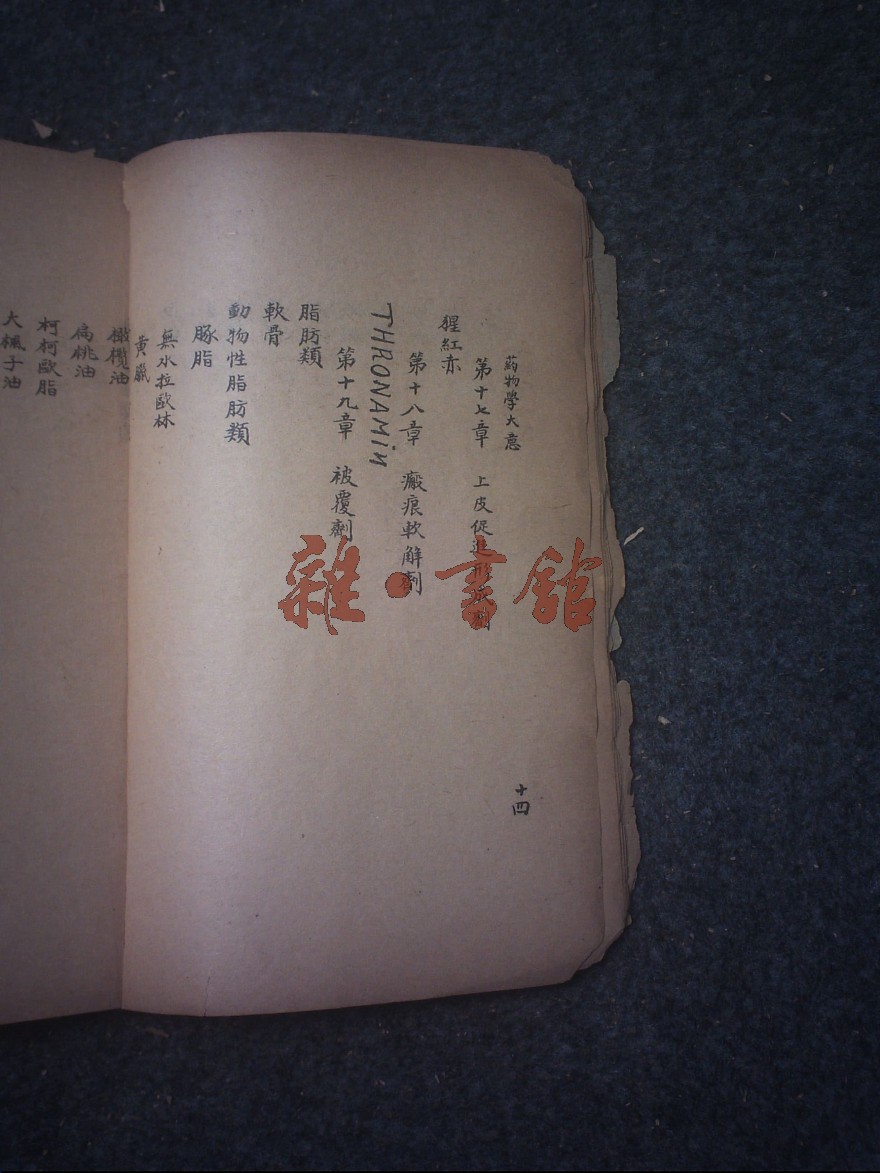 藥物學大意
第十七章 上皮促進形成劑
猩紅赤
第十八章 瘢痕軟解劑
THRONAMiN
第十九章 被覆劑
脂肪類
軟骨
動物性脂肪類
豚脂
無水拉歐林
黄蠟
橄欖油
扁桃油
柯柯歐脂
大楓子油
十四
雜·書館